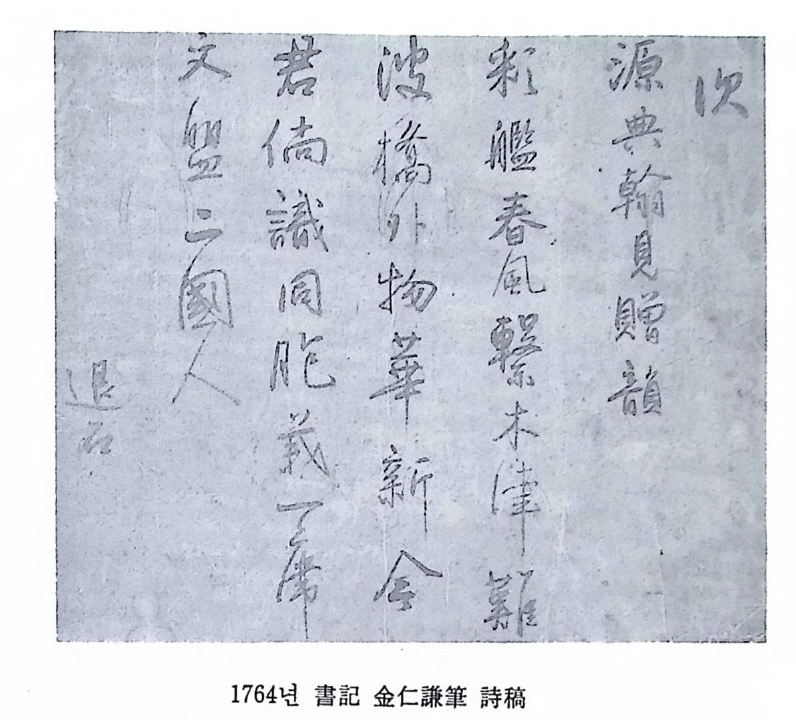 次
源典翰見贈韻
彩艦春風繫木津難
波橋外物華新令
君倘識同胞義一席
文盟二國人
退石
1764년 書記 金仁謙筆 詩稿